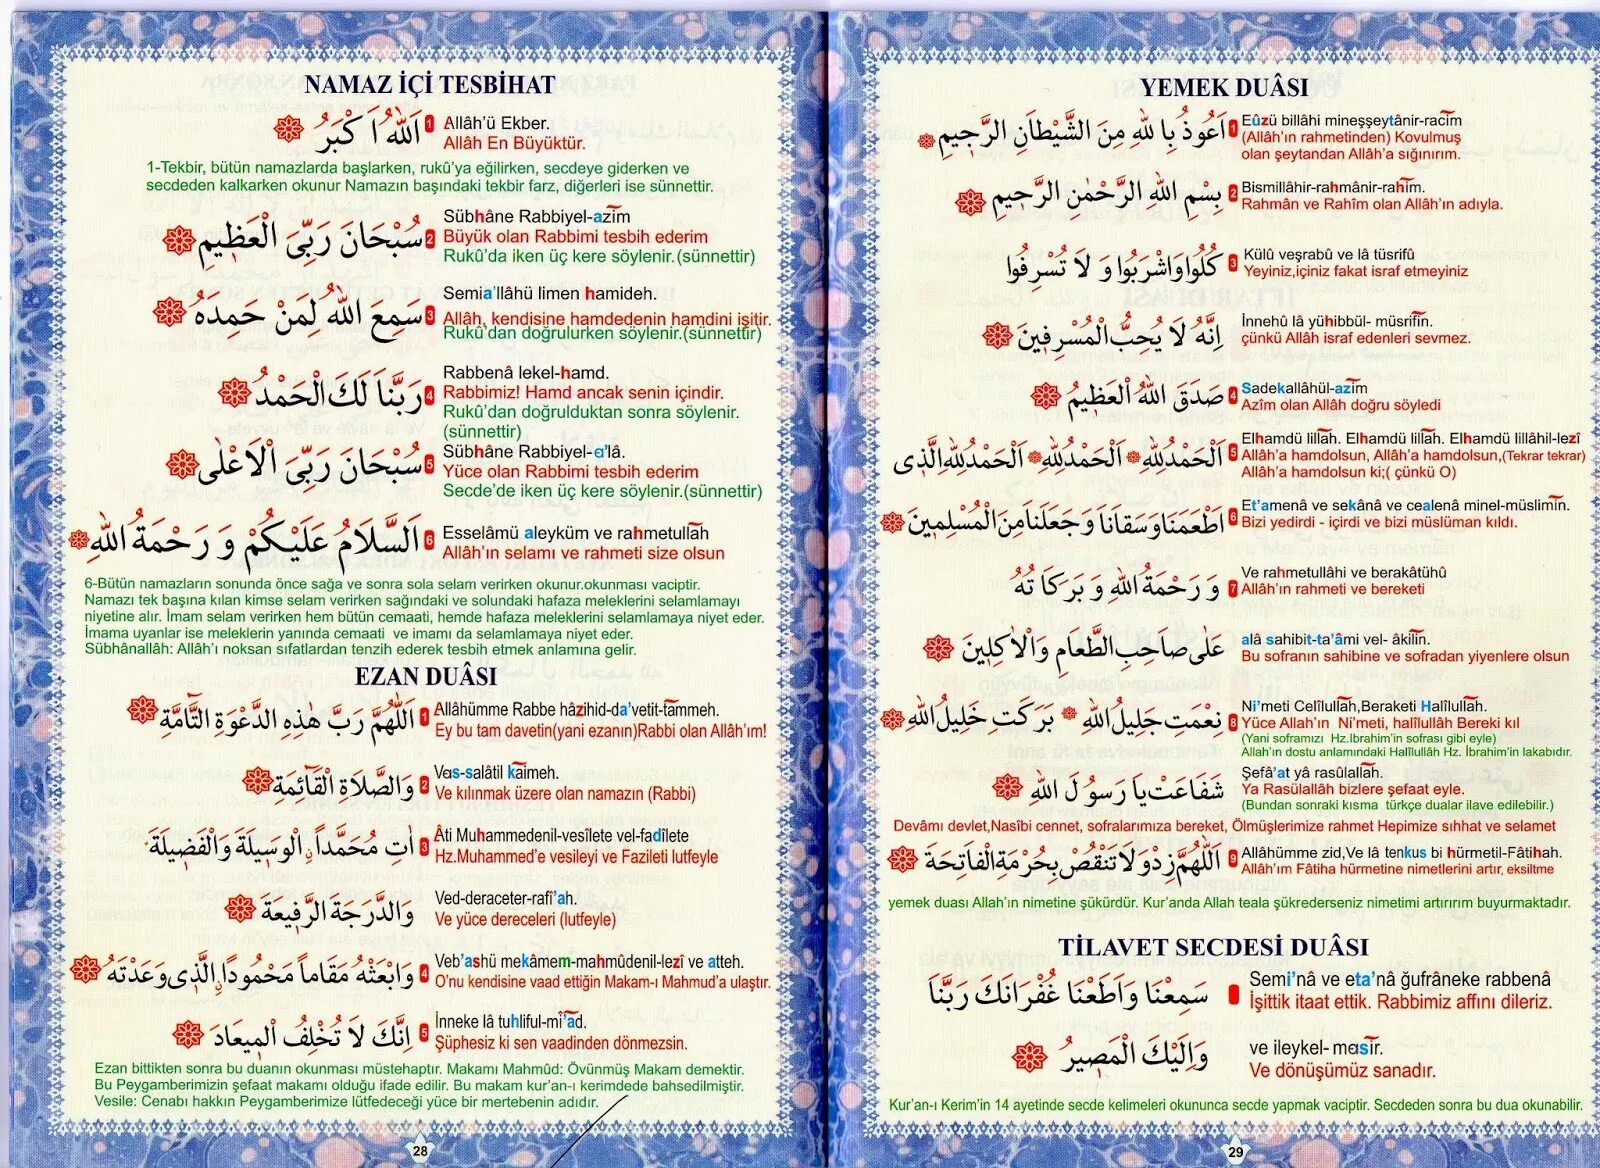 NAMAZ İÇİ TESBİHAT
اَللّٰهُ اَ كْبَرُ
1 Allâh'ü Ekber.
Allâh En Büyüktür.
1-Tekbir, bütün namazlarda başlarken, rukû'ya eğilirken, secdeye giderken ve
secdeden kalkarken okunur Namazın başındaki tekbir farz, diğerleri ise sünnettir.
سُبْحَانَ رَبِّىَ الْعَظ۪يمِ
2 Sübhâne Rabbiyel-azîm
Büyük olan Rabbimi tesbih ederim
Rukû'da iken üç kere söylenir.(sünnettir)
سَمِعَ اللّٰهُ لِمَنْ حَمِدَهُ
3 Semia'llâhü limen hamideh.
Allâh, kendisine hamdedenin hamdini işitir.
Rukû'dan doğrulurken söylenir.(sünnettir)
رَبَّنَا لَكَ الْحَمْدُ
4 Rabbenâ lekel-hamd.
Rabbimiz! Hamd ancak senin içindir.
Rukû'dan doğrulduktan sonra söylenir.
(sünnettir)
سُبْحَانَ رَبِّىَ الْاَعْلٰى
5 Sübhâne Rabbiyel-a'lâ.
Yüce olan Rabbimi tesbih ederim
Secde'de iken üç kere söylenir.(sünnettir)
اَلسَّلَامُ عَلَيْكُمْ وَ رَحْمَةُ اللّٰهِ
6 Esselâmü aleyküm ve rahmetullâh
Allâh'ın selamı ve rahmeti size olsun
6-Bütün namazların sonunda önce sağa ve sonra sola selam verirken okunur.okunması vaciptir.
Namazı tek başına kılan kimse selam verirken sağındaki ve solundaki hafaza meleklerini selamlamayı
niyetine alır. İmam selam verirken hem bütün cemaati, hemde hafaza meleklerini selamlamaya niyet eder.
İmama uyanlar ise meleklerin yanında cemaati ve imamı da selamlamaya niyet eder.
Sübhânallâh: Allâh'ı noksan sıfatlardan tenzih ederek tesbih etmek anlamına gelir.
EZAN DUÂSI
اَللّٰهُمَّ رَبَّ هٰذِهِ الدَّعْوَةِ التَّٓامَّةِ
1 Allâhümme Rabbe hâzihid-da'vetit-tâmmeh.
Ey bu tam davetin(yani ezanın)Rabbi olan Allâh'ım!
وَالصَّلَاةِ الْقَٓائِمَةِ
2 Vas-salâtil kâimeh.
Ve kılınmak üzere olan namazın (Rabbi)
اٰتِ مُحَمَّداًنِ الْوَس۪يلَةَ وَالْفَض۪يلَةَ
3 Âti Muhammedenil-vesîlete vel-fadîlete
Hz.Muhammed'e vesileyi ve Fazileti lutfeyle
وَالدَّرَجَةَ الرَّف۪يعَةَ
Ved-deraceter-rafî'ah.
Ve yüce dereceleri (lutfeyle)
وَابْعَثْهُ مَقَاماً مَحْمُودًانِ الَّذ۪ى وَعَدْتَهُ
4 Veb'ashü mekâmem-mahmûdenil-lezî ve atteh.
O'nu kendisine vaad ettiğin Makam-ı Mahmud'a ulaştır.
اِنَّكَ لَا تُخْلِفُ الْم۪يعَادَ
5 İnneke lâ tuhliful-mi'âd.
Şüphesiz ki sen vaadinden dönmezsin.
Ezan bittikten sonra bu duanın okunması müstehaptır. Makamı Mahmûd: Övünmüş Makam demektir.
Bu Peygamberimizin şefaat makamı olduğu ifade edilir. Bu makam kur'an-ı kerimdede bahsedilmiştir.
Vesile: Cenabı hakkın Peygamberimize lütfedeceği yüce bir mertebenin adıdır.
28
YEMEK DUÂSI
اَعُوذُ بِا للهِ مِنَ الشَّيْطَانِ الرَّج۪يمِ
1 Eûzü billâhi mineşşeytânir-racîm
(Allâh'ın rahmetinden) Kovulmuş
olan şeytandan Allâh'a sığınırım.
بِسْمِ اللّٰهِ الرَّحْمٰنِ الرَّح۪يمِ
2 Bismillâhir-rahmânir-rahîm.
Rahmân ve Rahîm olan Allâh'ın adıyla.
كُلُوا وَاشْرَبُوا وَ لَا تُسْرِفُوا
3 Külû veşrabû ve lâ tüsrifû
Yeyiniz,içiniz fakat israf etmeyiniz
اِنَّهُ لَا يُحِبُّ الْمُسْرِف۪ينَ
İnnehû lâ yühibbül- müsrifîn.
çünkü Allâh israf edenleri sevmez.
صَدَقَ اللّٰهُ الْعَظ۪يمُ
4 Sadekallâhül-azîm
Azîm olan Allâh doğru söyledi
اَلْحَمْدُ لِلّٰهِ اَلْحَمْدُ لِلّٰهِ اَلْحَمْدُ لِلّٰهِ الَّذ۪ى
5 Elhamdü lillâh. Elhamdü lillâh. Elhamdü lillâhil-lezî
Allâh'a hamdolsun, Allâh'a hamdolsun,(Tekrar tekrar)
Allâh'a hamdolsun ki;( çünkü O)
اَطْعَمَنَا وَسَقَانَا وَ جَعَلَنَا مِنَ الْمُسْلِم۪ينَ
6 Et'amenâ ve sekânâ ve cealenâ minel-müslimîn.
Bizi yedirdi - içirdi ve bizi müslüman kıldı.
وَ رَحْمَةُ اللّٰهِ وَ بَرَكَا تُهُ
7 Ve rahmetullâhi ve berakâtühû
Allâh'ın rahmeti ve bereketi
عَلٰى صَاحِبِ الطَّعَامِ وَالْاٰكِل۪ينَ
alâ sahibit-ta'âmi vel- âkilîn.
Bu sofranın sahibine ve sofradan yiyenlere olsun
نِعْمَتِ جَل۪يلُ اللّٰهِ بَرَكَتِ خَل۪يلُ اللّٰهِ
8 Ni'meti Celîlullâh,Beraketi Halîlullâh.
Yüce Allah'ın Ni'meti, halîlullâh Bereki kıl
(Yani soframızı Hz.Ibrahim'in sofrası gibi eyle)
Allah'ın dostu anlamındaki Halîlullâh Hz. İbrahim'in lakabıdır.
شَفَاعَتْ يَا رَسُو لَ اللّٰهِ
Şefâ'at yâ rasûlallâh.
Ya Rasülallâh bizlere şefaat eyle.
(Bundan sonraki kısma türkçe dualar ilave edilebilir.)
Devâmı devlet,Nasîbi cennet, sofralarımıza bereket, Ölmüşlerimize rahmet Hepimize sıhhat ve selamet
اَللّٰهُمَّ زِدْ وَ لَا تَنْقُصْ بِحُرْمَةِ الْفَاتِحَةِ
9 Allâhümme zid,Ve lâ tenkus bi hürmetil-Fâtihah.
Allâh'ım Fâtiha hürmetine nimetlerini artır, eksiltme
yemek duası Allah'ın nimetine şükürdür. Kur'anda Allah teala şükrederseniz nimetimi artırırım buyurmaktadır.
TİLAVET SECDESİ DUÂSI
سَمِعْنَا وَاَطَعْنَا غُفْرَانَكَ رَبَّنَا
Semi'nâ ve eta'nâ ğufrâneke rabbenâ
İşittik itaat ettik. Rabbimiz affını dileriz.
وَاِلَيْكَ الْمَص۪يرُ
ve ileykel- masîr.
Ve dönüşümüz sanadır.
Kur'an-ı Kerim'in 14 ayetinde secde kelimeleri okununca secde yapmak vaciptir. Secdeden sonra bu dua okunabilir.
29